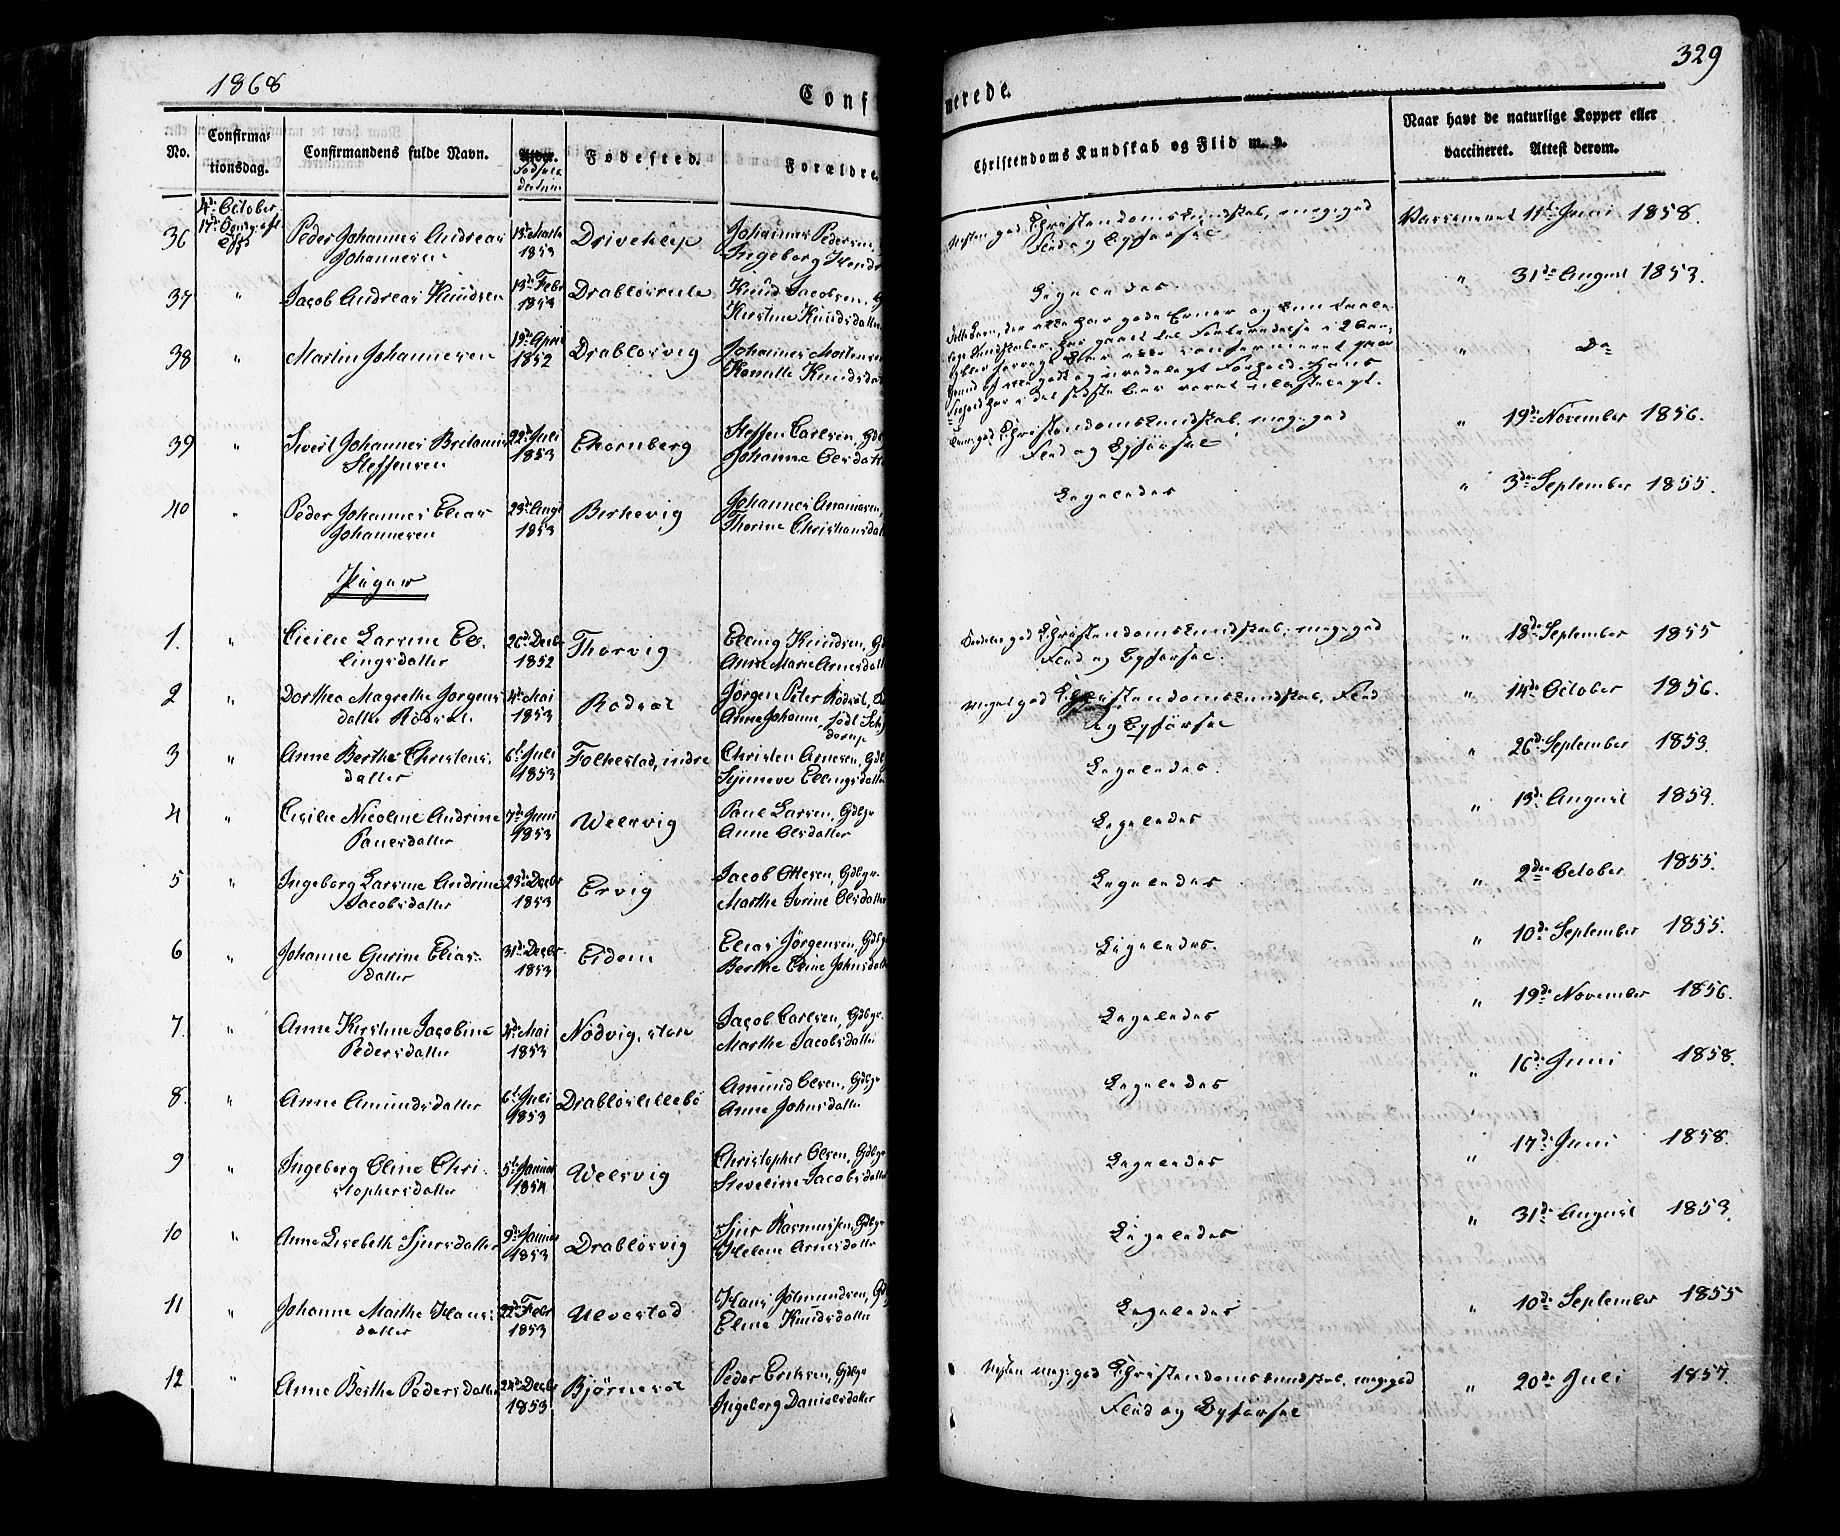 1868
Conf
No.
Confirma-
tionsdag.
Confirmandens fulde Navn.
Alder.
Fødsels
datum
Fødested.
Forældre
4de October
17de
36
Peder Johannes Andreas
Johannesen
13de Marts
1853
Driveklep
Johannes Pedersen,
Ingeborg
37
"
Jacob Andreas Knudsen
13de Febr
1853
Drabløsreite
Knud Jacobsen, G
Kirstine Knudsdatter
38
"
Martin Johannesen
19de April
1852
Drabløsvig
Johannes Mortensen
Knudsdat
39
"
Sivert Johannes Britanus
Steffensen
22de Juli
1853
Thornberg
Steffen Carlsen, Gdb
Johanne Olsdatte
40
"
Peder Johannes Elias
Johannesen
23de Augt
1853
Birkevig
Johannes Ananiasen,
Thorine Christiansdat
Piger
1.
"
Cicilie Larsine El-
lingsdatter
26de Decbr
1852
Thorvig
Elling Knudsen, Gd
Anne Marie Arnesdatter
2
"
Dorthea Magrethe Jørgens
datter Rødsæt.
4de Mai
1853
Rødsæt
Jørgen Peter Rødsæt,
Anne Johanne, født Sch
derup
3
"
Anne Berthe Christens-
datter
6te Juli
1853
Folkestad, indre
Christen Arnesen, Gdb
Synneve Ellingsdatte
4
"
Cicilie Nicoline Andrine
Paulsdatter
7de Juni
1853
Welsvig
Paul Larsen, Gdbgr
Anne Olsdatter
5
"
Ingeborg Larsine Andrine
Jacobsdatter
23de Decbr
1853
Ervig
Jacob Ottesen, Gdbgr.
Marthe Ivrine Olsdatter
6
"
Johanne Gurine Elias-
datter
31te Decbr
1853
Eidem
Elias Jørgensen, Gdbg
Berthe Eline Johnsdatt
7.
"
Anne Kirstine Jacobine
Pedersdatter
4de Mai
1853
Nødvig, store
Jacob Carlsen, Gdbgr.
Marthe Jacobsdatter
8.
"
Anne Amundsdatter
6te Juli
1853
Drabløslillebø
Amund Olsen, Gdbgr
Anne Johnsdatter
9
"
Ingeborg Eline Chri-
stophersdatter
5te Januar
1854
Welsvig
Christopher Olsen, Gdbgr
Steveline Jacobsdatter
10
"
Anne Lisebeth Sjursdatter
9de Januar
1853
Drabløsvig
Sjur Rasmussen, Gdbgr
Helene Arnesdatter
11
"
Johanne Marthe Hans-
datter
22de Febr
1853
Ulvestad
Hans Jetmundsen, Gdb
Eline Knudsdatter
12
"
Anne Berthe Pedersdatter
24de Decbr
1853
Bjørnesæt
Peder Eriksen, Gdbgr
Ingeborg Danielsdatter
329
merede.
Christendoms Kundskab og Flid m. v.
Naar havt de naturlige Kopper eller
vaccineret. Attest derom.
Næsten god Christendomskundskab, meget god
Flid og Opførsel
Vaccineret 11te Juni 1858.
Ligeledes.
" 31te August 1853.
" Do
god Christendomskundskab, meget god
Flid og Opførsel
" 19de November 1856.
Ligeledes
" 3die September 1855.
god Christendomskundskab, meget god
Flid og Opførsel.
" 18de September 1855
Meget god Christendomskundskab, Flid
og Opførsel
" 14de October 1856.
Ligeledes.
" 26de September 1853.
Ligeledes
" 13de August 1859.
Ligeledes
" 2den October 1855.
Ligeledes.
" 10de September 1855.
Ligeledes
" 19de November 1856.
Ligeledes
" 16de Juni 1858.
Ligeledes
" 17de Juni 1858.
Ligeledes
" 31te August 1853.
Ligeledes
" 10de September 1855
Næsten meget god Christendomskundskab, meget god
Flid og Opførsel
" 20de Juli 1857.